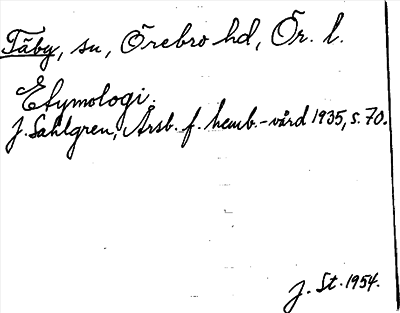 Täby, sn, Örebro hd, Ör. l.
Etymologi.
J. Sahlgren, Årsb. f. hemb.-vård 1935, s. 70.
J. St. 1954.